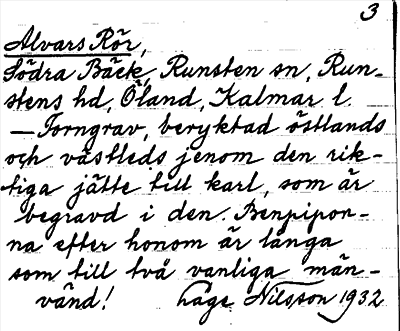 3
Alvars Rör,
Södra Bäck, Runsten sn, Run-
stens hd, Öland, Kalmar l.
—Forngrav, beryktad östlands
och västleds jenom den rik-
tiga jätte till karl, som är
begravd i den. Benpipor-
na efter honom är långa
som till två vanliga män-
vänd! Lage Nilsson 1932